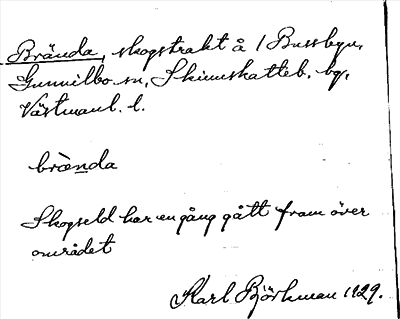 Brända, skogstrakt å 1 Bussbyn,
Gunnilbo sn, Skinnskatteb. bg,
Västmanl. l.
brènda
Skogseld har en gång gått fram över
området
Karl Björkman 1929.